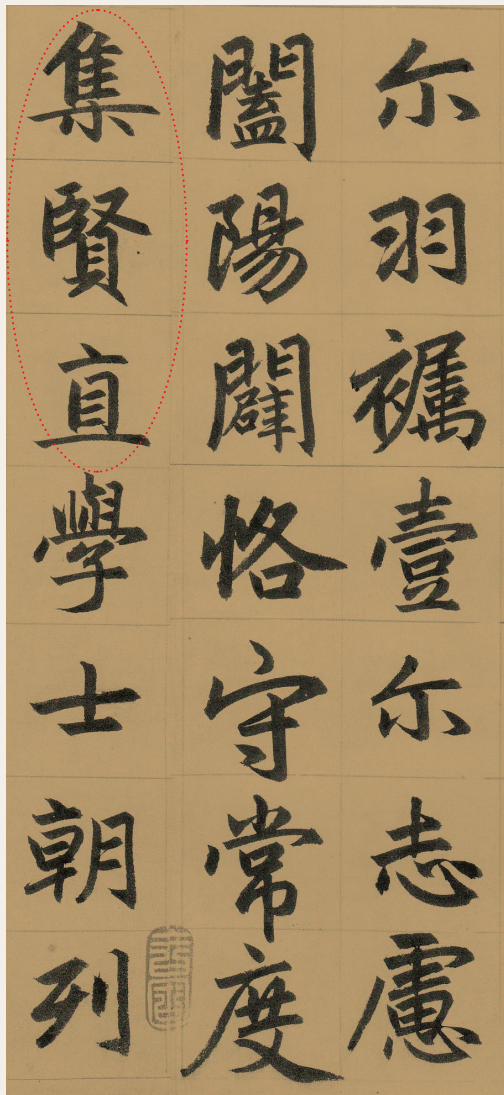 尔羽壹尔志慮
闔陽闢恪守常度
集賢直學士朝列